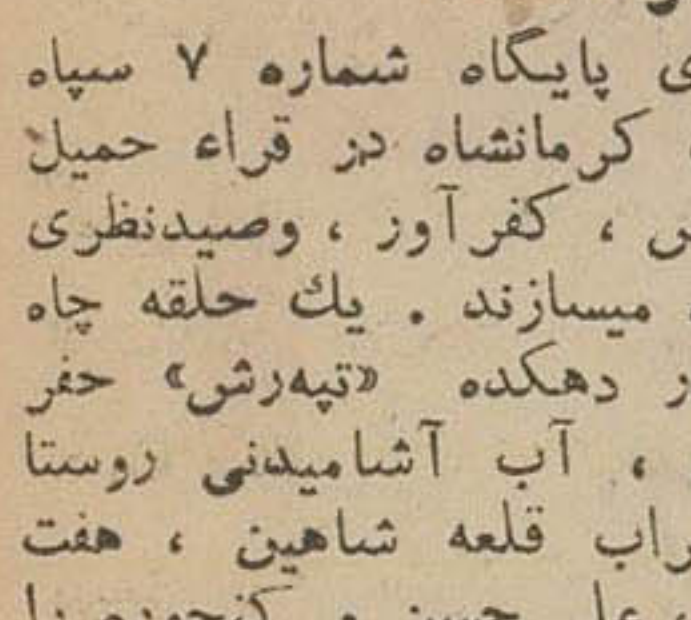 پایگاه شماره ۷ سپاه
کرمانشاه در قراء حمیل
، کفرآور ، وصیدنظری
میسازند . یك حلقه چاه
دهکده «تپه‌رش» حفر
، آب آشامیدنی روستا
قلعه شاهین ، هفت